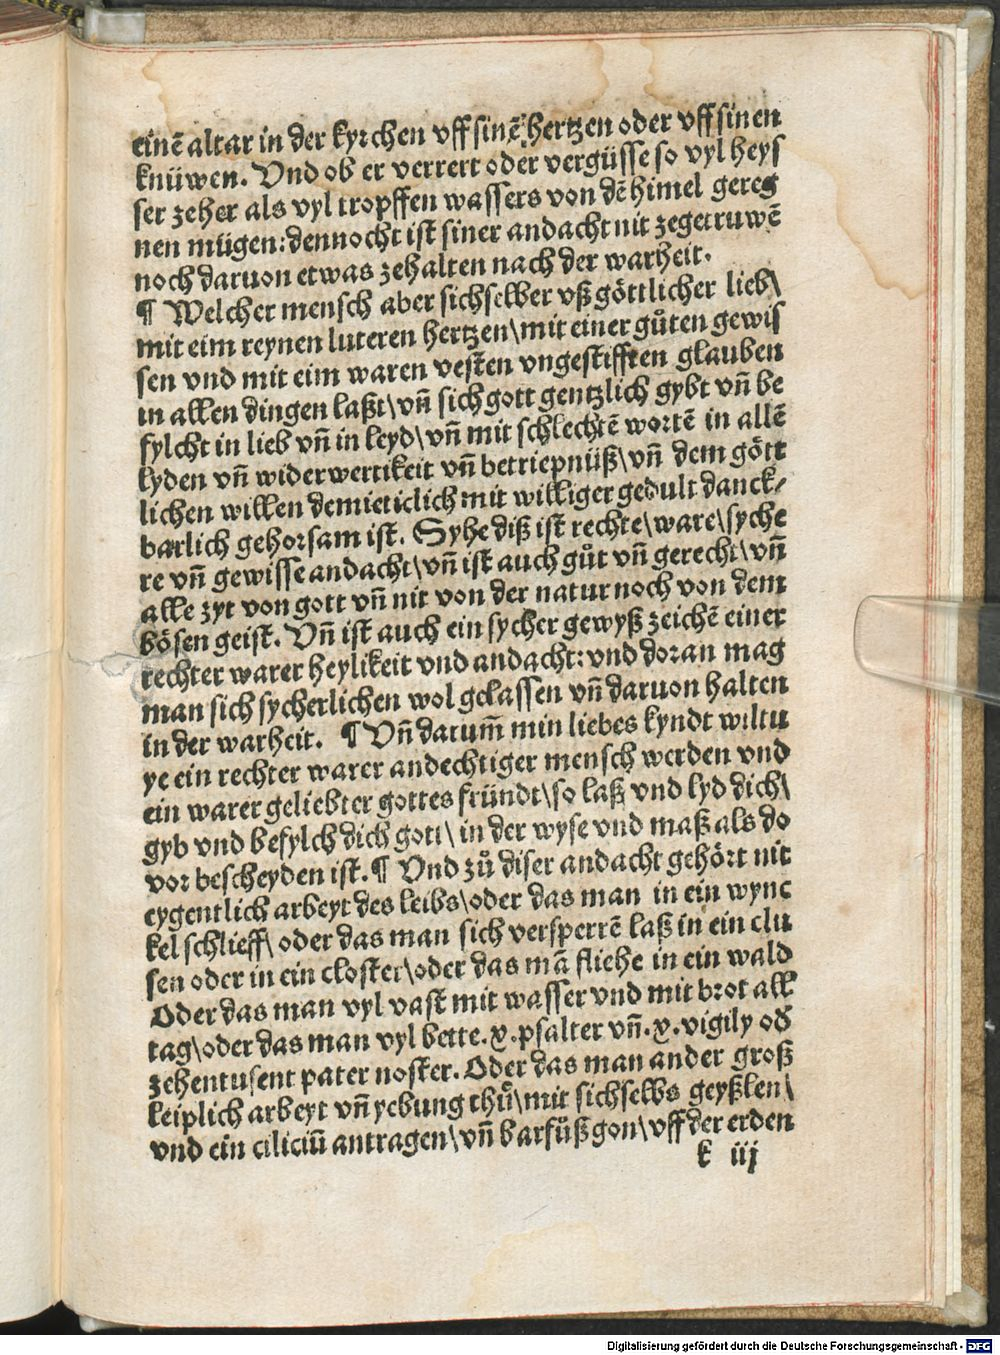 einē altar in der kyrchen vff sinē hertzen oder vff sinen
knüwen. Vnd ob er verrert oder vergüsse so vyl heys
ser zeher als vyl tropffen wassers von dē himel gereg
nen mügen: dennocht ist siner andacht nit zegetruwē
noch daruon etwas zehalten nach der warheit.
¶ Welcher mensch aber sichselber vß göttlicher lieb\
mit eim reynen luteren hertzen\ mit einer gůten gewis
sen vnd mit eim waren vesten vngestifften glauben
in allen dingen laßt\ vn̄ sich gott gentzlich gybt vn̄ be
fylcht in lieb vn̄ in leyd\ vn̄ mit schlechtē wortē in allē
lyden vn̄ widerwertikeit vn̄ betriepnüß\ vn̄ dem gött
lichen willen demieticlich mit williger gedult danck/
barlich gehorsam ist. Syhe diß ist rechte\ ware\ syche
re vn̄ gewisse andacht\ vn̄ ist auch gůt vn̄ gerecht\ vn̄
alle zyt von gott vn̄ nit von der natur noch von dem
bösen geist. Vn̄ ist auch ein sycher gewyß zeichē einer
rechter warer heylikeit vnd andacht: vnd doran mag
man sich sycherlichen wol gelassen vn̄ daruon halten
in der warheit. ¶ Vn̄ darum̄ min liebes kyndt wiltu
ye ein rechter warer andechtiger mensch werden vnd
ein warer geliebter gottes fründt\ so laß vnd lyd dich\
gyb vnd befylch dich gott\ in der wyse vnd maß als do
vor bescheyden ist. ¶ Vnd zů diser andacht gehört nit
eygentlich arbeyt des leibs\ oder das man in ein wync
kel schlieff\ oder das man sich versperrē laß in ein clu
sen oder in ein closter\ oder das mā fliehe in ein wald
Oder das man vyl vast mit wasser vnd mit brot all
tag\ oder das man vyl bette .x. psalter vn̄ .x. vigily od
zehentusent pater noster. Oder das man ander groß
leiplich arbeyt vn̄ yebung thů\ mit sichselbs geyßlen\
vnd ein ciliciū antragen\ vn̄ barfůß gon\ vff der erden
k iij
Digitalisierung gefördert durch die Deutsche Forschungsgemeinschaft - DFG